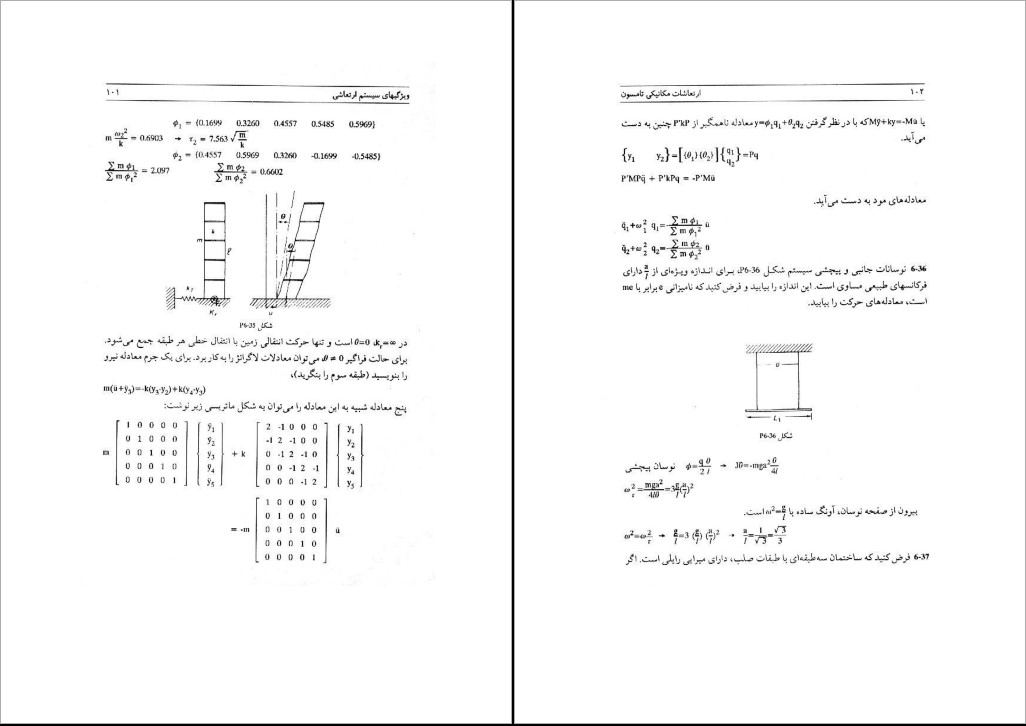 ویژگیهای سیستم ارتعاشی ۱۰۱
ϕ₁ = {0.1699 0.3260 0.4557 0.5485 0.5969}
m ω₂²/k = 0.6903 → τ₂ = 7.563 √(m/k)
ϕ₂ = {0.4557 0.5969 0.3260 -0.1699 -0.5485}
∑ m ϕ₁ / ∑ m ϕ₁² = 2.097 ∑ m ϕ₂ / ∑ m ϕ₂² = 0.6602
θ
k
θ
m
u
شکل P6-35
در θ=0 ،kᵣ=∞ است و تنها حرکت انتقالی زمین با انتقال خطی هر طبقه جمع می‌شود.
برای حالت فراگیر θ ≠ 0، می‌توان معادلات لاگرانژ را به‌کار برد. برای یک جرم معادله نیرو
را بنویسید (طبقه سوم را بنگرید)،
m(ü+ÿ₃)=-k(y₃-y₂)+k(y₄-y₃)
پنج معادله شبیه به این معادله را می‌توان به شکل ماتریسی زیر نوشت:
1 0 0 0 0 ÿ₁ 2 -1 0 0 0 y₁
0 1 0 0 0 ÿ₂ -1 2 -1 0 0 y₂
m 0 0 1 0 0 ÿ₃ + k 0 -1 2 -1 0 y₃
0 0 0 1 0 ÿ₄ 0 0 -1 2 -1 y₄
0 0 0 0 1 ÿ₅ 0 0 0 -1 2 y₅
1 0 0 0 0
0 1 0 0 0
= -m 0 0 1 0 0 ü
0 0 0 1 0
0 0 0 0 1
ارتعاشات مکانیکی تامسون ۱۰۲
یا Mÿ+ky=-Mü که با در نظر گرفتن y=ϕ₁q₁+θ₂q₂ معادله ناهمگیر از P'kP چنین به دست
می‌آید.
{y₁ y₂}=[{θ₁}{θ₂}]{q₁ q₂}=Pq
P'MPq̈ + P'kPq = -P'Mü
معادله‌های مود به دست می‌آید.
q̈₁+ω₁² q₁=-∑ m ϕ₁ / ∑ m ϕ₁² ü
q̈₂+ω₂² q₂=-∑ m ϕ₂ / ∑ m ϕ₂² ü
6-36 نوسانات جانبی و پیچشی سیستم شکل P6-36، برای اندازه ویژه‌ای از a/l دارای
فرکانسهای طبیعی مساوی است. این اندازه را بیابید و فرض کنید که نامیزانی e برابر با me
است، معادله‌های حرکت را بیابید.
L₁
شکل P6-36
نوسان پیچشی ϕ=q θ/2 l → Jθ̈=-mga² θ/4l
ωᵣ²=mga²/4lθ=3g/l(a/l)²
بیرون از صفحه نوسان، آونگ ساده با ω²=g/l است.
ω²=ωᵣ² → g/l=3 (g/l) (a/l)² → a/l=1/√3=√3/3
6-37 فرض کنید که ساختمان سه‌طبقه‌ای با طبقات صلب، دارای میرایی رایلی است. اگر